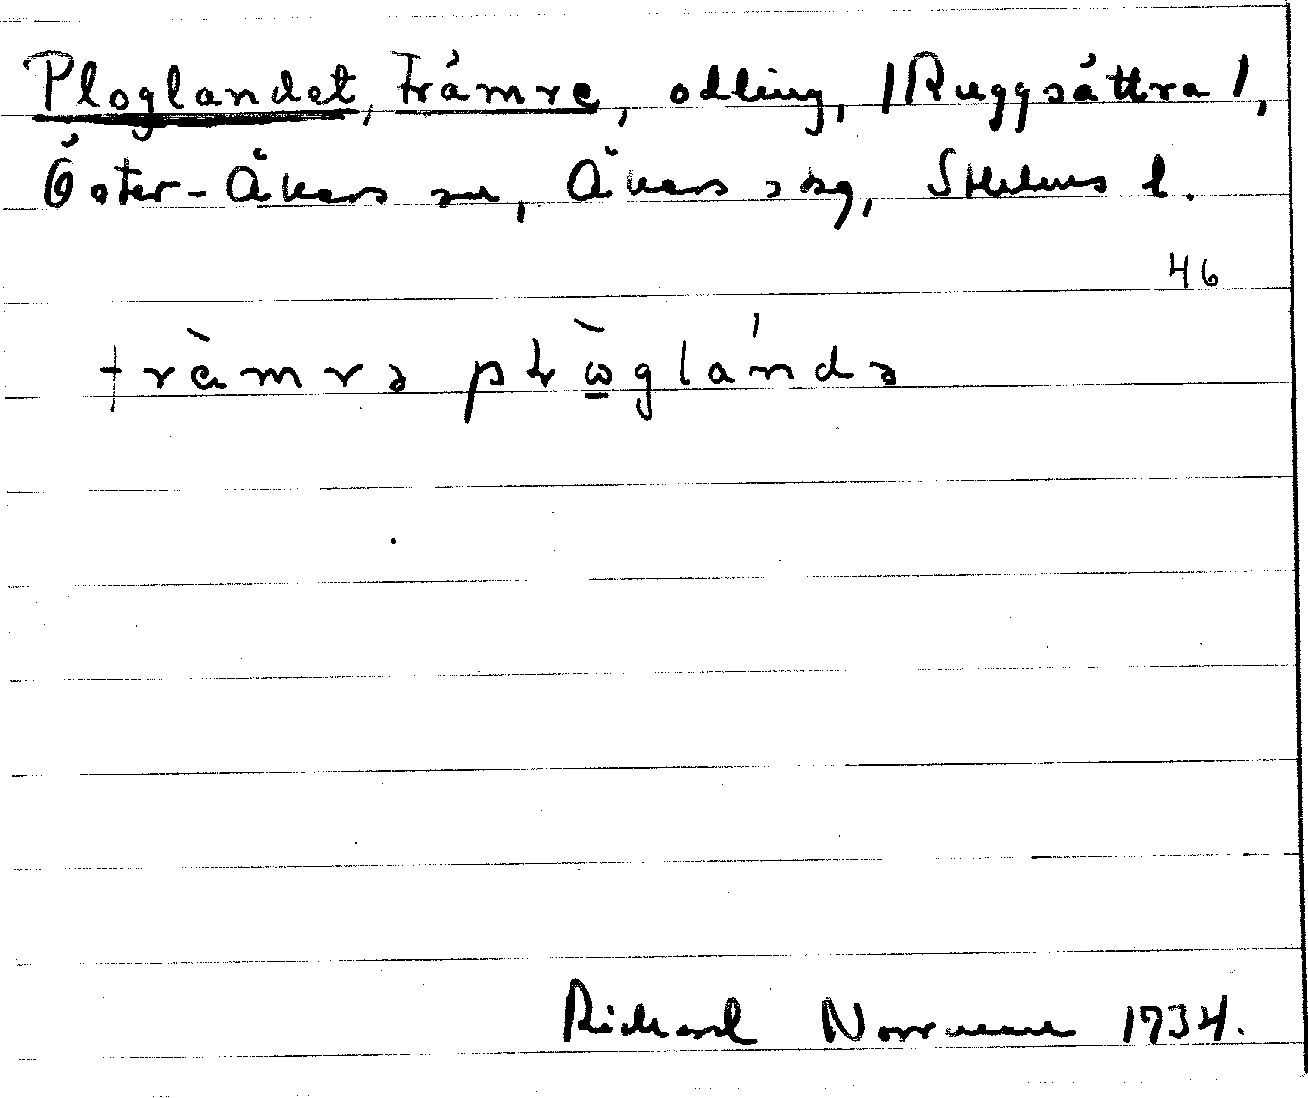 Ploglandet, Främre, odling, /Ruggsättra/,
Öster-Åkers sn, Åkers skg, Sthlms l.
46
fràmrə pɫɷ̀glándə
Rickard Norrman 1934.